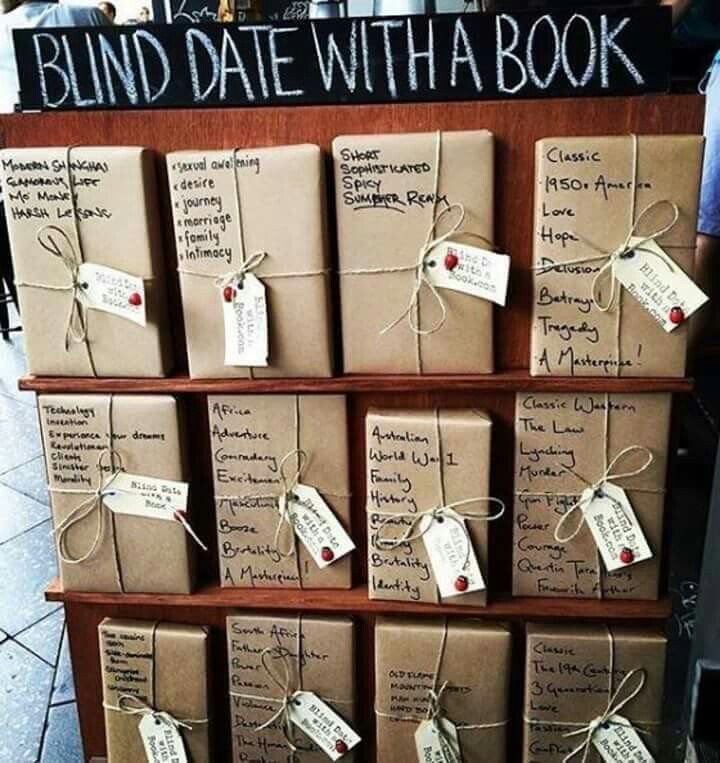 BLIND DATE WITH A BOOK
MODERN SHANGHAI
GLAMOROUS LIFE
MO MONEY
HARSH LESSONS
Blind Date
with a
Book.com
× sexual awakening
× desire
× journey
× marriage
× family
× intimacy
Blind Date
with a
Book.com
SHORT
SOPHISTICATED
SPICY
SUMMER READ
Blind Date
with a
Book.com
Classic
1950s America
Love
Hope
Delusion
Betrayal
Tragedy
A Masterpiece!
Blind Date
with a
Book.com
Technology
Invention
Experience your dreams
Revolutionary
Clients
Sinister
Morality
Blind Date
with a
Book
Africa
Adventure
Comradery
Excitement
Masculinity
Booze
Brutality
A Masterpiece!
Blind Date
with a
Book.com
Australian
World War 1
Family
History
Beauty
Brutality
Identity
Blind Date
with a
Book.com
Classic Western
The Law
Lynching
Murder
Gun Fight
Power
Courage
Quentin Tarantino's
Favourite Author
Blind Date
with a
Book.com
Blind Date
with a
South Africa
Father Daughter
Power
Passion
Violence
The Human
Blind Date
with a
Book.com
OLD FLAME
Blind Date
with a
Book.com
Classic
The 19th Century
3 Generations
Love
Passion
Conflict
Blind Date
with a
Book.com